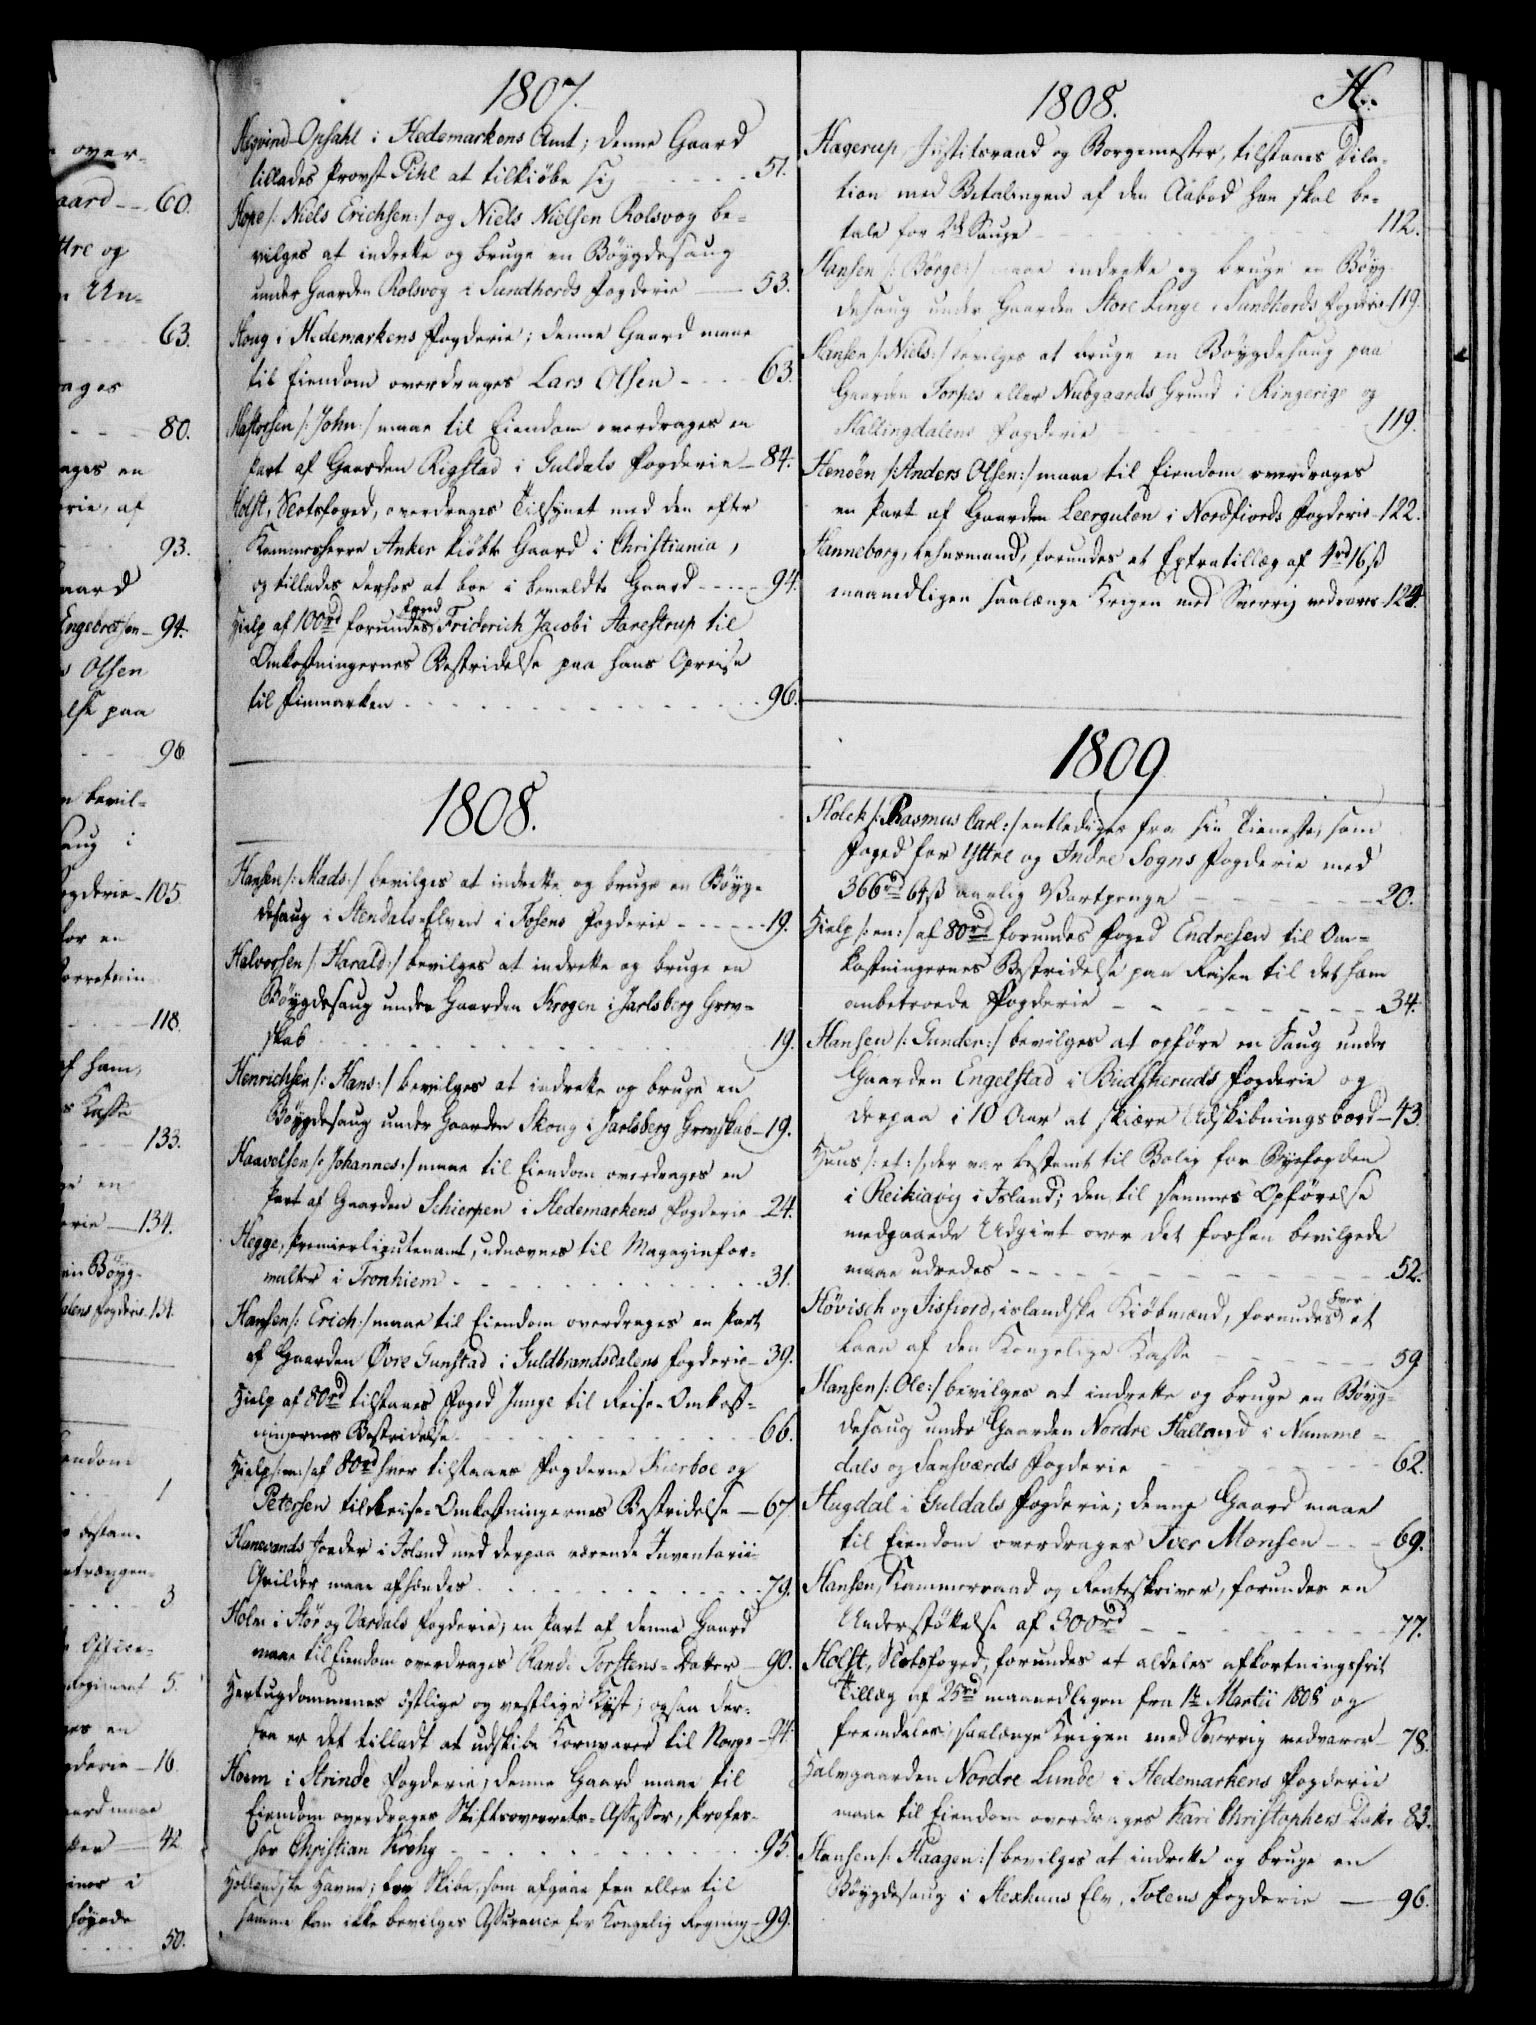 over-
aard — 60.
ttre og
n Un-
63.
rages
80.
ages en
erie, af
93.
aard
Engebretsen — 94.
s Olsen
else paa
96.
n bevil-
Saug i
ogderie — 105
for en
118.
af ham,
s Kasse
133.
ge en
derie — 134.
ein Böyg-
dalens Fogderie 134.
endom
1
3
Office-
Regiment 5.
ges en
gderie — 16.
aard maae
tter — 42.
50.
1807.
Opsahl i Hedemarkens Amt; denne Gaard
tillades Provst Pihl at tilkiöbe sig 51.
Hope /: Niels Erichsen :/ og Niels Nielsen Rolsvog be-
vilges at indrette og bruge en Böygdesaug
under Gaarden Rolsvog i Sundhords Fogderie — 53.
Houg i Hedemarkens Fogderie; denne Gaard maae
til Eiendom overdrages Lars Olsen — 63.
/: John :/ maae til Eiendom overdrages en
Part af Gaarden Rigstad i Guldals Fogderie — 84.
Holst, Slotsfoged, overdrages Tilsynet med den efter
Kammerherre Anker kiöbte Gaard i Christiania,
og tillades derhos at boe i bemeldte Gaard — 94.
Hielp af 100 rd forundes Friderich Jacobi Aarestrup til
Omkostningernes Bestridelse paa hans Opreise
til Finmarken 96.
1808.
Hansen /: Mads :/ bevilges at indrette og bruge en Böyg-
desaug i Stendals-Elven i Fosens Fogderie — 19.
Halvorsen /: Harald :/ bevilges at indrette og bruge en
Böygdesaug under Gaarden Krogen i Jarlsberg Grev-
skab 19.
Henrichsen /: Hans :/ bevilges at indrette og bruge en
Böygdesaug under Gaarden Skoug i Jarlsberg Grevskab — 19.
Haavelsen /: Johannes :/ maae til Eiendom overdrages en
Part af Gaarden Schierpen i Hedemarkens Fogderie 24.
Hegge, Premierlieutenant, udnævnes til Magazinfor-
valter i Tronhiem 31.
Hansen /: Erich :/ maae til Eiendom overdrages en Part
af Gaarden Övre Gunstad i Guldbrandsdalens Fogderie — 39.
Hielp af 80 rd tilstaaes Foged Junge til Reise-Omkost-
ningernes Bestridelse 66.
Hielp /: en :/ af 80 rd hver tilstaaes Fogderne Kierboe og
Petersen til Reise-Omkostningernes Bestridelse — 67.
Hunevands Jorder i Island med derpaa værende Inventarii-
Qvilder maae afhændes 79.
Holm i Stör og Værdals Fogderie; en Part af denne Gaard
maae til Eiendom overdrages Randi Torstens-Datter — 90.
Hertugdommenes östlige og vestlige Kyst; ogsaa der-
fra er det tilladt at udskibe Kornvarer til Norge — 94.
Hoem i Strinde Fogderie, denne Gaard maae til
Eiendom overdrages Stiftsoverrets-Assessor, Profes-
sor Christian Krohg 95.
Hollandske Havne; for Skibe, som afgaae fra eller til
samme kan ikke bevilges Assurance for Kongelig Regning — 99.
1808. H.
Hagerup, Justitsraad og Borgemester, tilstaaes Dila-
tion med Betalingen af den Aabod han skal be-
tale for 2de Sauge 112.
Hansen /: Börge :/ maae indrette og bruge en Böyg-
desaug under Gaarden Store Linge i Sundhords Fogderie 119.
Hansen /: Niels :/ bevilges at bruge en Böygdesaug paa
Gaarden Torpes eller Nubgaards Grund i Ringerige og
Hallingdalens Fogderie 119.
Henöen /: Anders Olsen :/ maae til Eiendom overdrages
en Part af Gaarden Leergulen i Nordfiords Fogderie — 122.
Hanneborg, Lehnsmand, forundes et Extratillæg af 4 rd 16 ß
maanedligen saalænge Krigen med Sverrig vedvarer — 124.
1809
Holck /: Rasmus Carl :/ entlediges fra sin Tieneste, som
Foged for Yttre og Indre Sogns Fogderie med
366 rd 64 ß aarlig Vartpenge 20.
Hielp /: en :/ af 80 rd forundes Foged Endresen til Om-
kostningernes Bestridelse paa Reisen til det ham
anbetroede Fogderie 34.
Hansen /: Gunder :/ bevilges at opföre en Saug under
Gaarden Engelstad i Budskeruds Fogderie og
derpaa i 10 Aar at skiære Udskibningsbord — 43.
Huus /: et :/, der var bestemt til Bolig for Byefogden
i Reikiavig i Island; den til sammes Opförelse
medgaaede Udgivt over det forhen bevilgede
maae udredes 52.
Hövisch og Jisfiord, islandske Kiöbmænd, forundes hver et
Laan af den Kongelige Kasse 59
Hansen /: Ole :/ bevilges at indrette og bruge en Böyg-
desaug under Gaarden Nordre Halland i Numme-
dals og Sansværds Fogderie 62.
Hugdal i Guldals Fogderie; denne Gaard maae
til Eiendom overdrages Iver Monsen — 69.
Hansen, Kammerraad og Renteskriver, forundes en
Understöttelse af 300 rd 77.
Holst, Slotsfoged, forundes et aldeles afkortningsfrit
Tillæg af 25 rd maanedligen fra 1te Martii 1808 og
fremdeles, saalænge Krigen med Sverrig vedvarer — 78.
Halvgaarden Nordre Lunde i Hedemarkens Fogderie
maae til Eiendom overdrages Kari Christophers Datter 83.
Hansen /: Haagen :/ bevilges at indrette og bruge en
Böygdesaug i Hexhuus Elv, Totens Fogderie — 96.